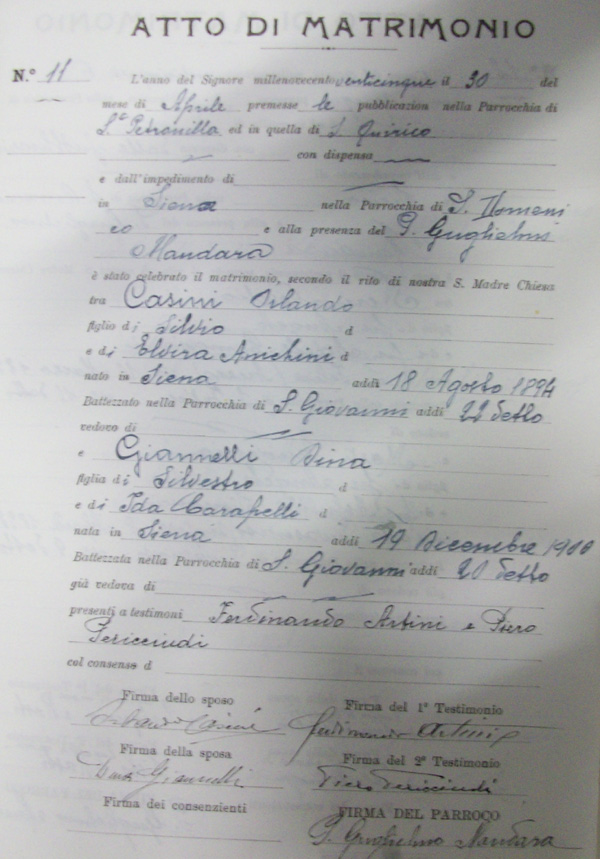 ATTO DI MATRIMONIO
N.° 11 L'anno del Signore millenovecento venticinque il 30 del
mese di Aprile premesse le pubblicazion nella Parrocchia di
S.a Petronilla ed in quella di S. Quirico
con dispensa
e dall'impedimento di
in Siena nella Parrocchia di S. Domeni
co e alla presenza del P. Guglielmo
Mandara
è stato celebrato il matrimonio, secondo il rito di nostra S. Madre Chiesa
tra Casini Orlando
figlio di Silvio d
e di Elvira Anichini d
nato in Siena addì 18 Agosto 1894
Battezzato nella Parrocchia di S. Giovanni addì 22 detto
vedovo di
e Giannelli Dina
figlia di Silvestro d
e di Ida Carapelli d
nata in Siena addì 19 Dicembre 1900
Battezzata nella Parrocchia di S. Giovanni addì 20 detto
già vedova di
presenti a testimoni Ferdinando Artini e Piero
Pericciuoli
col consenso d
Firma dello sposo Firma del 1° Testimonio
Orlando Casini Ferdinando Artini
Firma della sposa Firma del 2° Testimonio
Dina Giannelli Piero Pericciuoli
Firma dei consenzienti FIRMA DEL PARROCO
P. Guglielmo Mandara